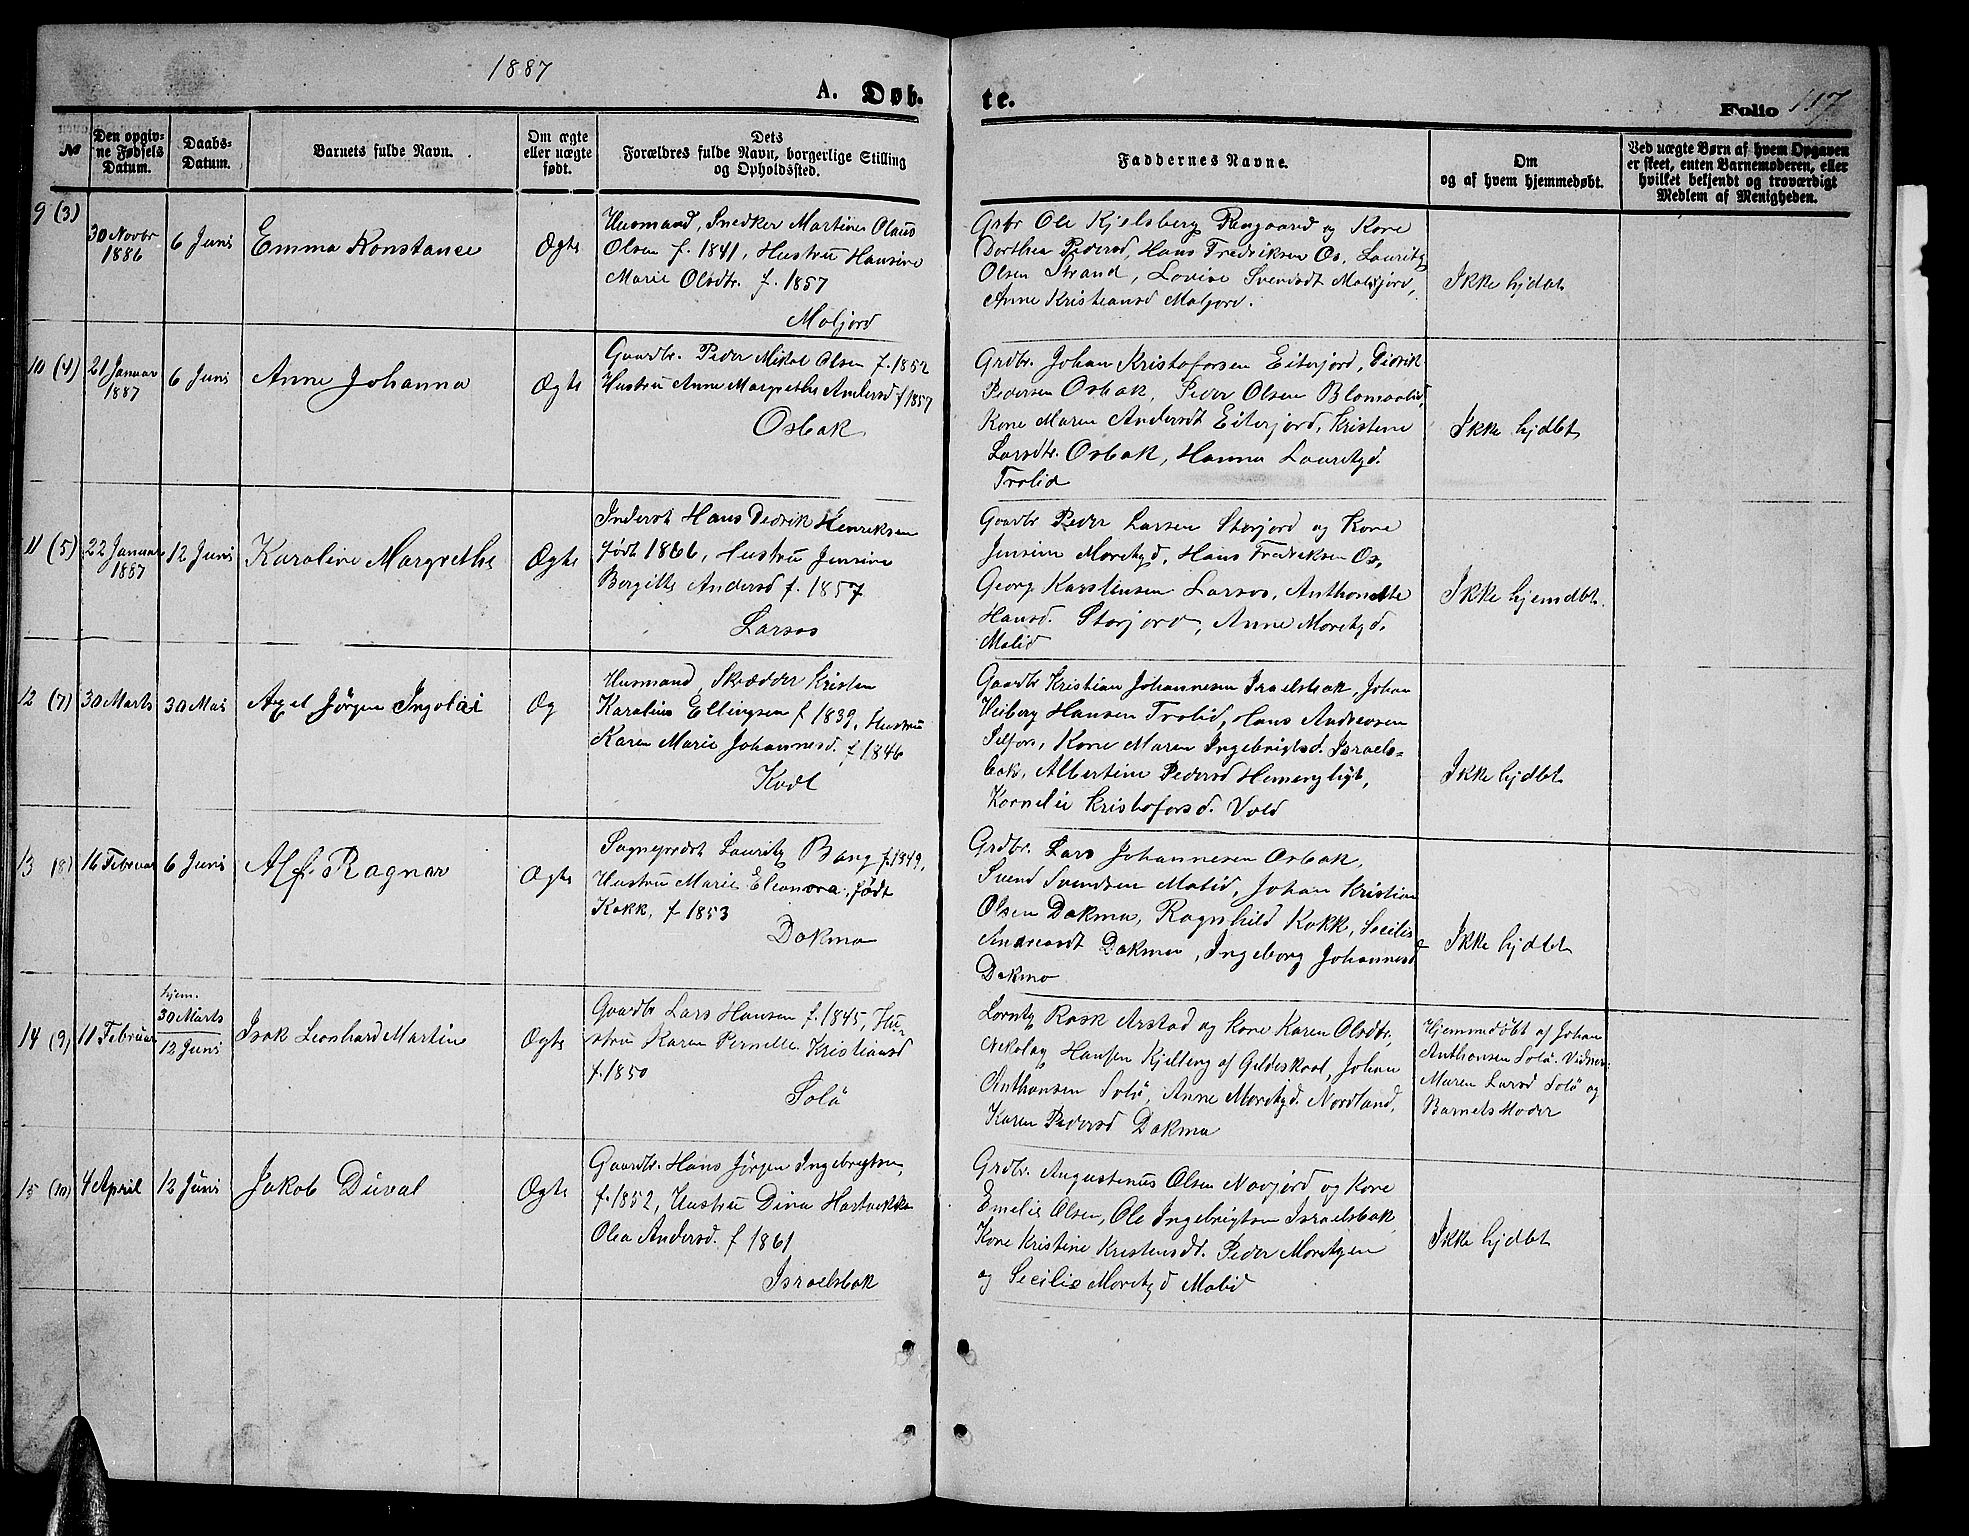 1887
A. Døb-
te.
Folio 117
No
Den opgiv-
ne Fødsels
Datum.
Daabs-
Datum.
Barnets fulde Navn.
Om ægte
eller uægte
født.
Dets
Forældres fulde Navn, borgerlige Stilling
og Opholdssted.
Faddernes Navne.
Om
og af hvem hjemmedøbt.
Ved uægte Børn af hvem Opgaven
er skeet, enten Barnemoderen, eller
hvilket bekjendt og troværdigt
Medlem af Menigheden.
9 (3)
30 Novbr
1886
6 Juni
Emma Konstance
Ægte
Husmand, Snedker Martines Olaus
Olsen f. 1841, Hustru Hansine
Marie Olsdtr. f. 1857
Moljord
Grbr Ole Kjelsberg Rengaard og Kone
Dorthea Pedersd, Hans Fredriksen Os, Lauritz
Olsen Strand, Lovise Svendsdt Moldjord,
Anne Kristiansd Moljord.
Ikke hjdbt
10 (4)
21 Januar
1887
6 Juni
Anne Johanna
Ægte
Gaardbr. Peder Mikal Olsen f. 1852
Hustru Anne Margrethe Andersd f 1857
Osbak
Grdbr. Johan Kristofersen Eiterjord, Didrik
Pedersen Osbak, Peder Olsen Blomoolid,
Kone Maren Andersdt Eiterjord, Kristine
Larsdtr. Osbak, Hanna Lauritzd.
Trolid
Ikke hjdbt
11 (5)
22 Januar
1887
12 Juni
Karoline Margrethe
Ægte
Inderst Hans Dedrik Henriksen
født 1866, Hustru Jensine
Bergitte Andersd f. 1857
Larsos
Gaardbr Peder Larsen Storjord og Kone
Jensine Moretzd, Hans Fredriksen Os,
Georg Karstensen Larsos, Anthonette
Hansd. Storjord, Anne Moretzd.
Molid
Ikke hjemdbt.
12 (7)
30 Marts
30 Mai
Axel Jörgen Ingolai
Æg
Husmand, Skrædder Kristen
Karolius Ellingsen f 1839, Hustru
Karen Marie Johannesd. f 1846
Kvdl
Gaardbr Kristian Johannesen Israelsbak, Johan
Heiberg Hansen Trolid, Hans Andreasen
Selfors, Kone Maren Ingebrigtsd. Israels-
bak, Albertine Pedersd Hemengligt,
Kornelie Kristofersd. Vold
Ikke hjdbt
13 (8)
16 Februar
6 Juni
Alf Ragnar
Ægte
Sogneprest Lauritz Bang f. 1849,
Hustru Marie Eleonora, født
Kokk, f 1853
Dokmo
Grdbr. Lars Johannesen Osbak,
Svend Svendsen Molid, Johan Kristian
Olsen Dokmo, Ragnhild Kokk, Secilie
Andreasdt Dokmo, Ingeborg Johannesd
Dokmo
Ikke hjdbt
14 (9)
11 Februar
hjem.
30 Marts
12 Juni
Isak Leonhard Martin
Ægte
Gaardbr Lars Hansen f. 1845, Hu-
stru Karen Pernelle Kristiansd
f. 1850
Solö
Lorntz Rask Arstad og Kone Karen Olsdtr.
Nikolay Hansen Kjelleng af Gildeskaal, Johan
Anthonsen Solö, Anne Moretzd. Nordland,
Karen Pedersd Dokmo
Hjemmedøbt af Johan
Anthonsen Solö. Vidner
Maren Larsd Solö og
Barnets Moder
15 (10)
4 April
12 Juni
Jakob Duval
Ægte
Gaardbr. Hans Jørgen Ingebrigtsen,
f. 1852, Hustru Dina
Olea Andersd. f 1861
Israelsbak
Grdbr. Augustenus Olsen Navjord og Kone
Emelie Olsen, Ole Ingebrigtsen Israelsbak
Kone Kristine Kristensdt. Peder Moretzen
og Secilie Moretzd Molid
Ikke hjdbt